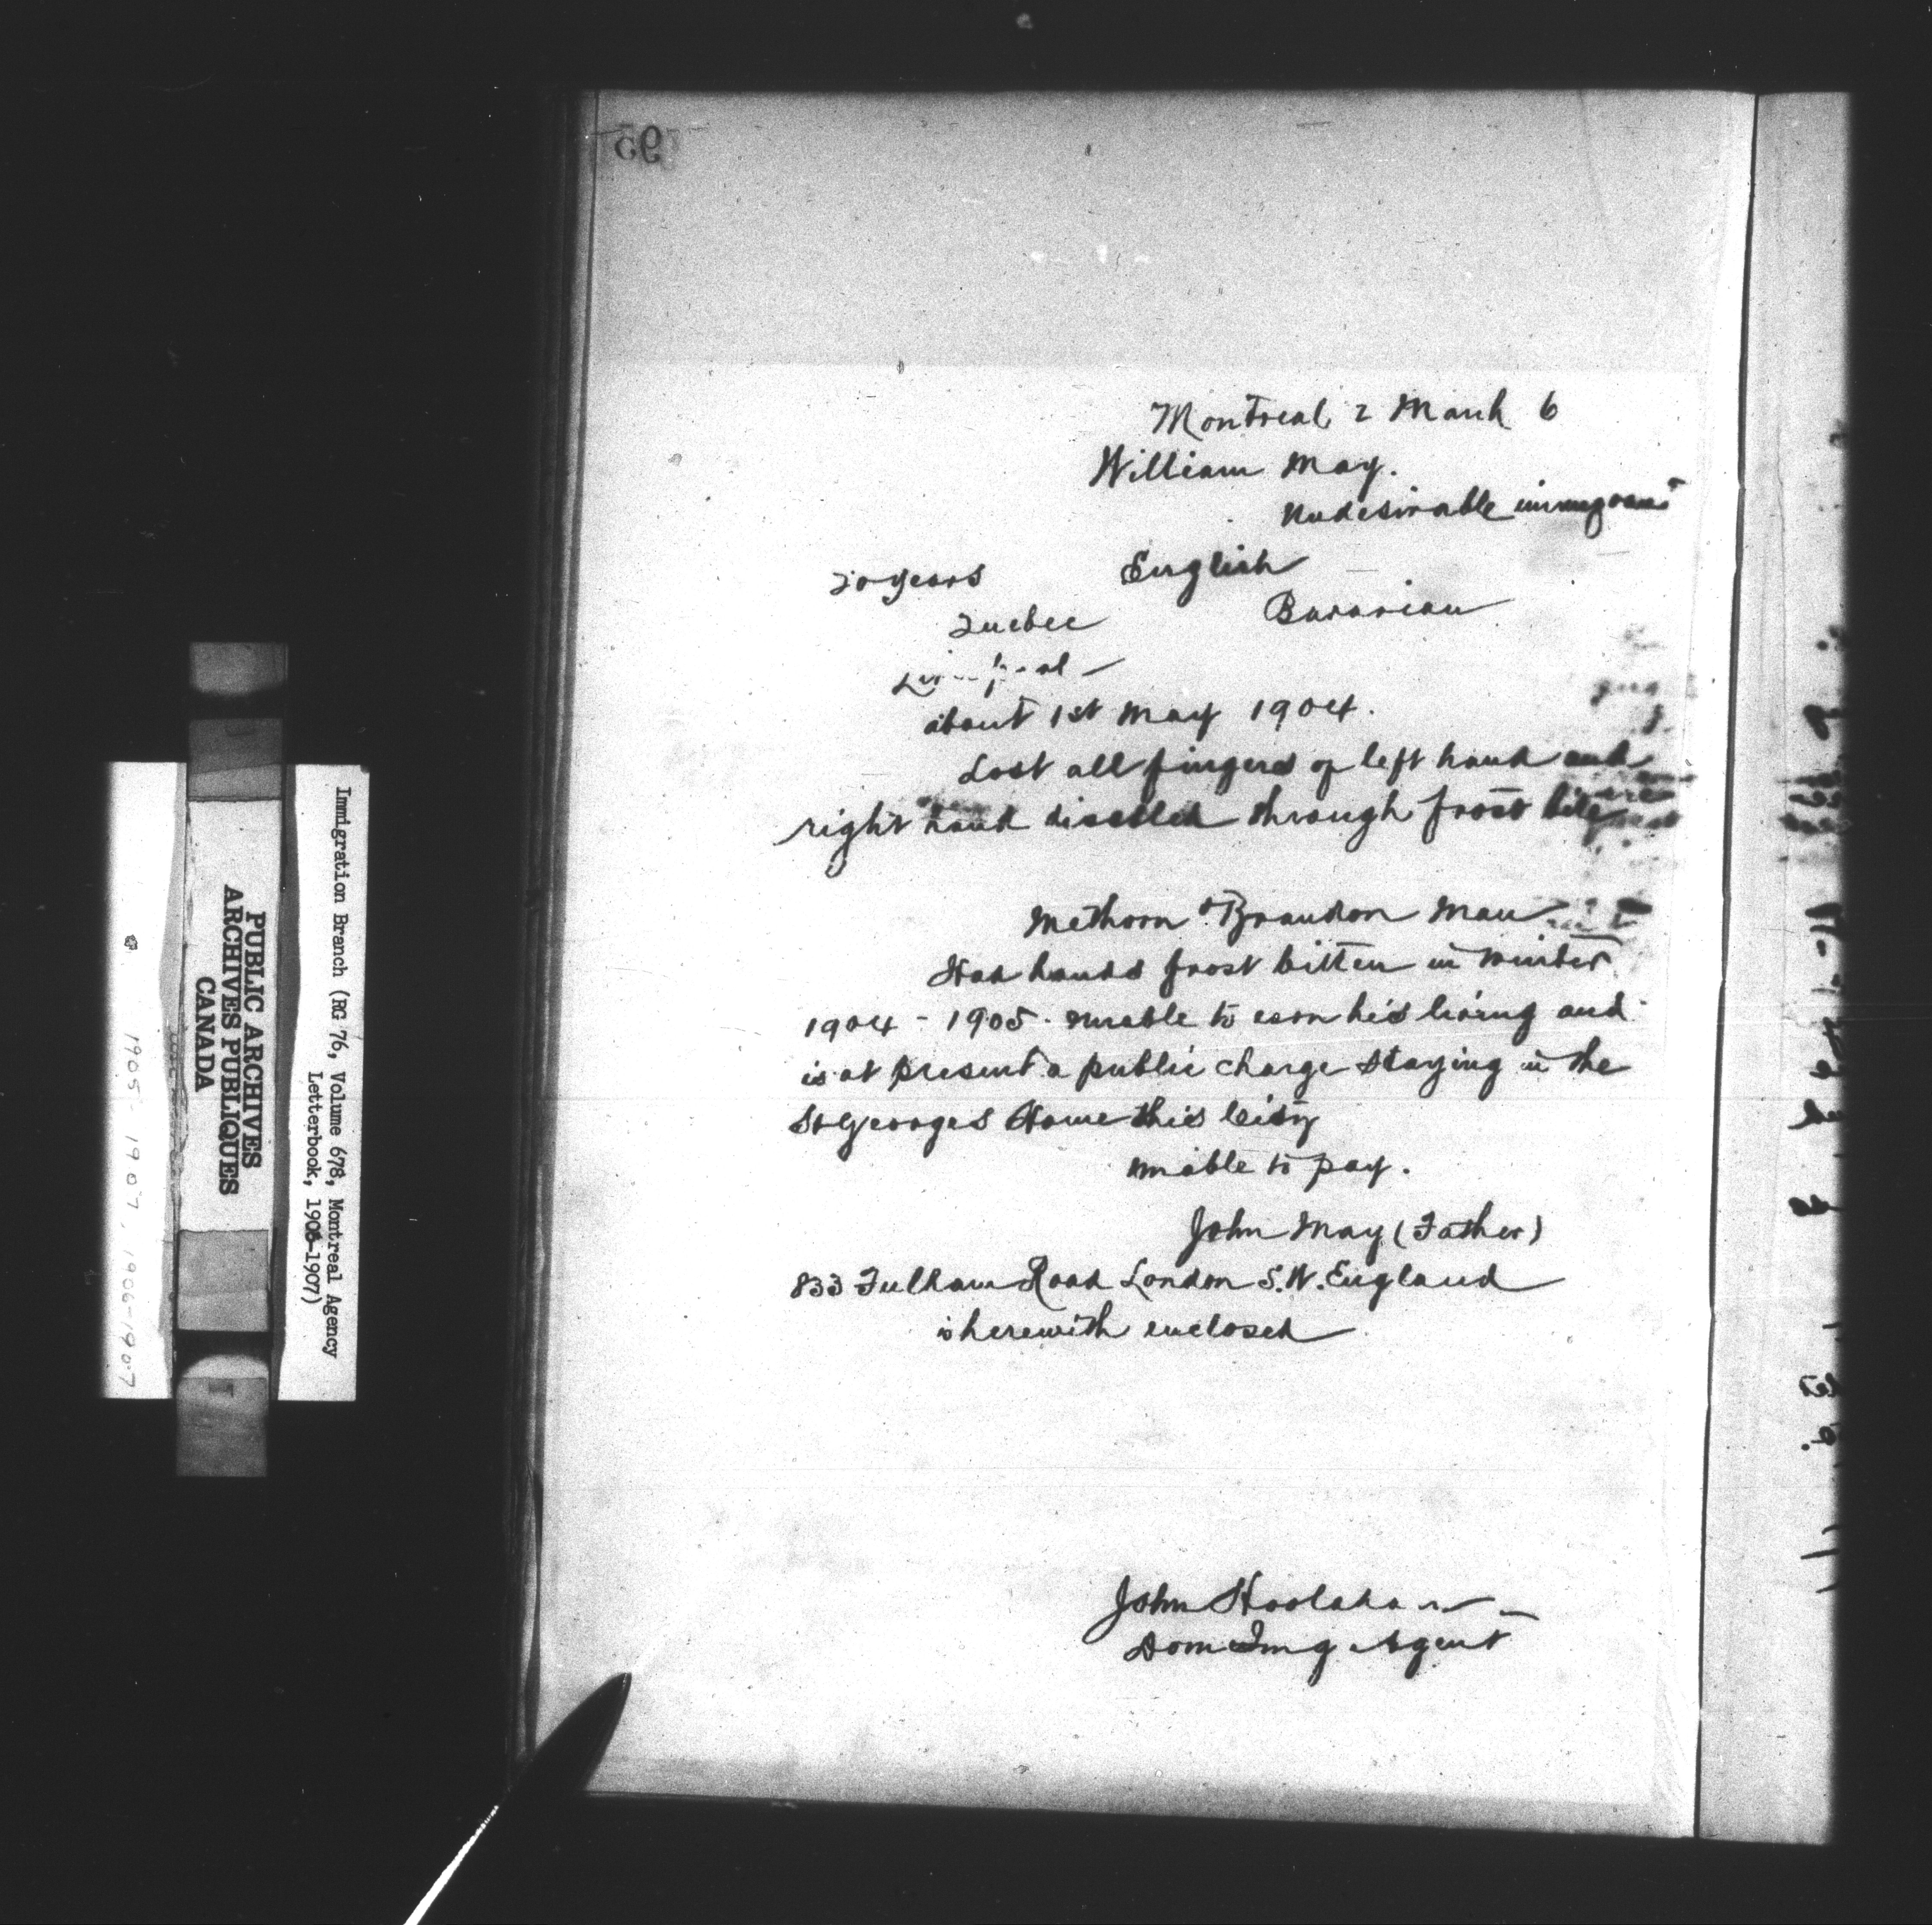 95
Montreal 2 March 6
William May.
Undesirable immigrant
20 years English
Quebec Bavarian
about 1st May 1904.
Lost all fingers of left hand and
right hand disabled through frost bite
Methorn Brandon Man
Had hands frost bitten in winter
1904 - 1905. unable to earn his living and
is at present a public charge staying in the
St Georges Home this City
unable to pay.
John May (Father)
833 Fulham Road London S.W. England
is herewith enclosed
John Hoolahan
Dom Img Agent
Immigration Branch (RG 76, Volume 678, Montreal Agency
Letterbook, 1906-1907)
PUBLIC ARCHIVES
ARCHIVES PUBLIQUES
CANADA
1905-1907, 1906-1907